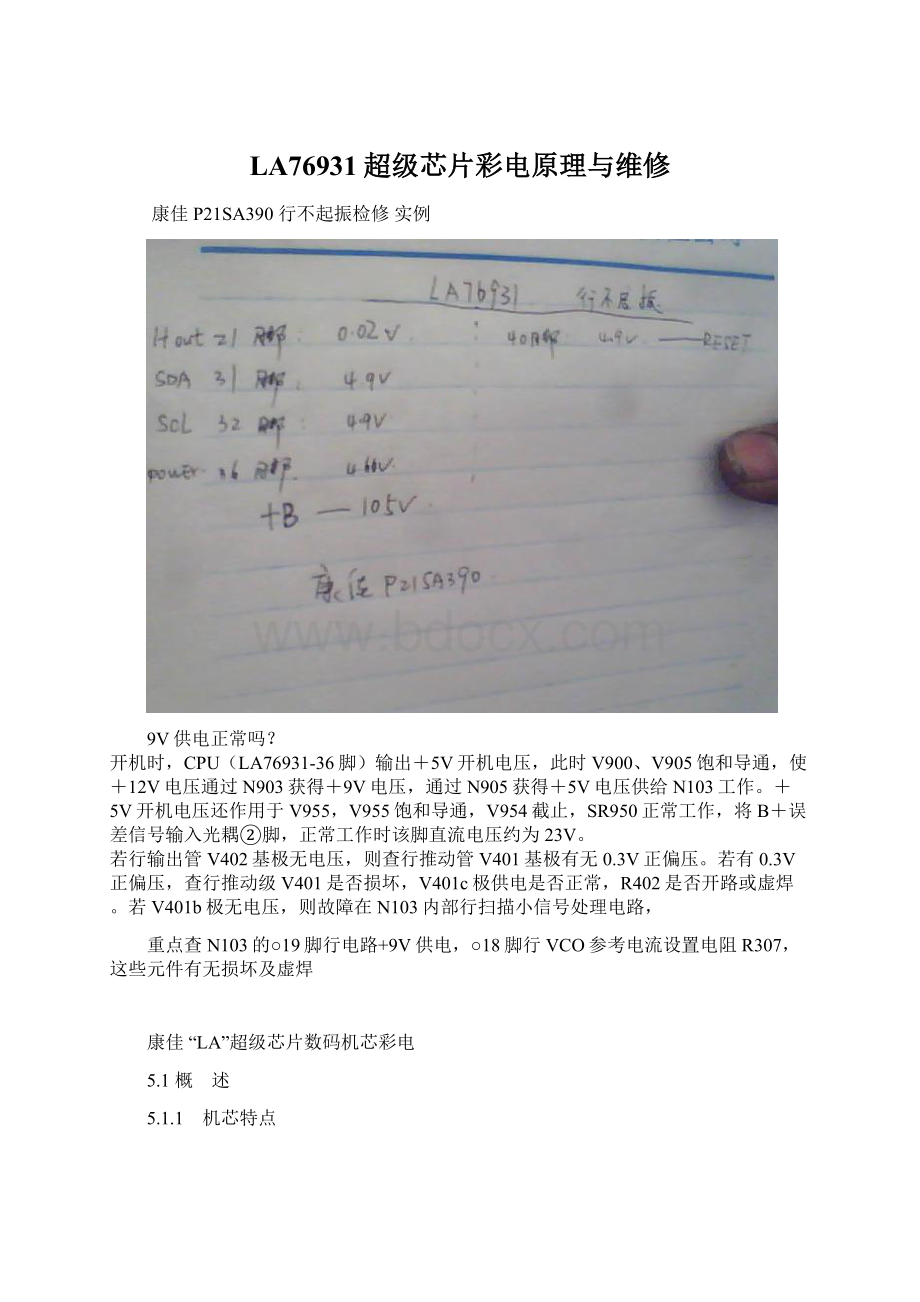 LA76931超级芯片彩电原理与维修
康佳 P21SA390 行不起振检修 实例
LA76931 行不启振
Hout 21脚: 0.02V
40脚 4.9V —— RESET
SDA 31脚: 4.9V
SCL 32脚: 4.9V
POWER 36脚 4.66V
+B — 105V
康佳 P21SA390
www.bdocx.com
9V供电正常吗？
开机时，CPU（LA76931-36脚）输出＋5V开机电压，此时V900、V905饱和导通，使
＋12V电压通过N903获得＋9V电压，通过N905获得＋5V电压供给N103工作。＋
5V开机电压还作用于V955，V955饱和导通，V954截止，SR950正常工作，将B＋误
差信号输入光耦②脚，正常工作时该脚直流电压约为23V。
若行输出管V402基极无电压，则查行推动管V401基极有无0.3V正偏压。若有0.3V
正偏压，查行推动级V401是否损坏，V401c极供电是否正常，R402是否开路或虚焊
。若V401b极无电压，则故障在N103内部行扫描小信号处理电路，
重点查N103的○19脚行电路+9V供电，○18脚行VCO参考电流设置电阻R307，
这些元件有无损坏及虚焊
康佳“LA”超级芯片数码机芯彩电
5.1概　述
5.1.1　机芯特点